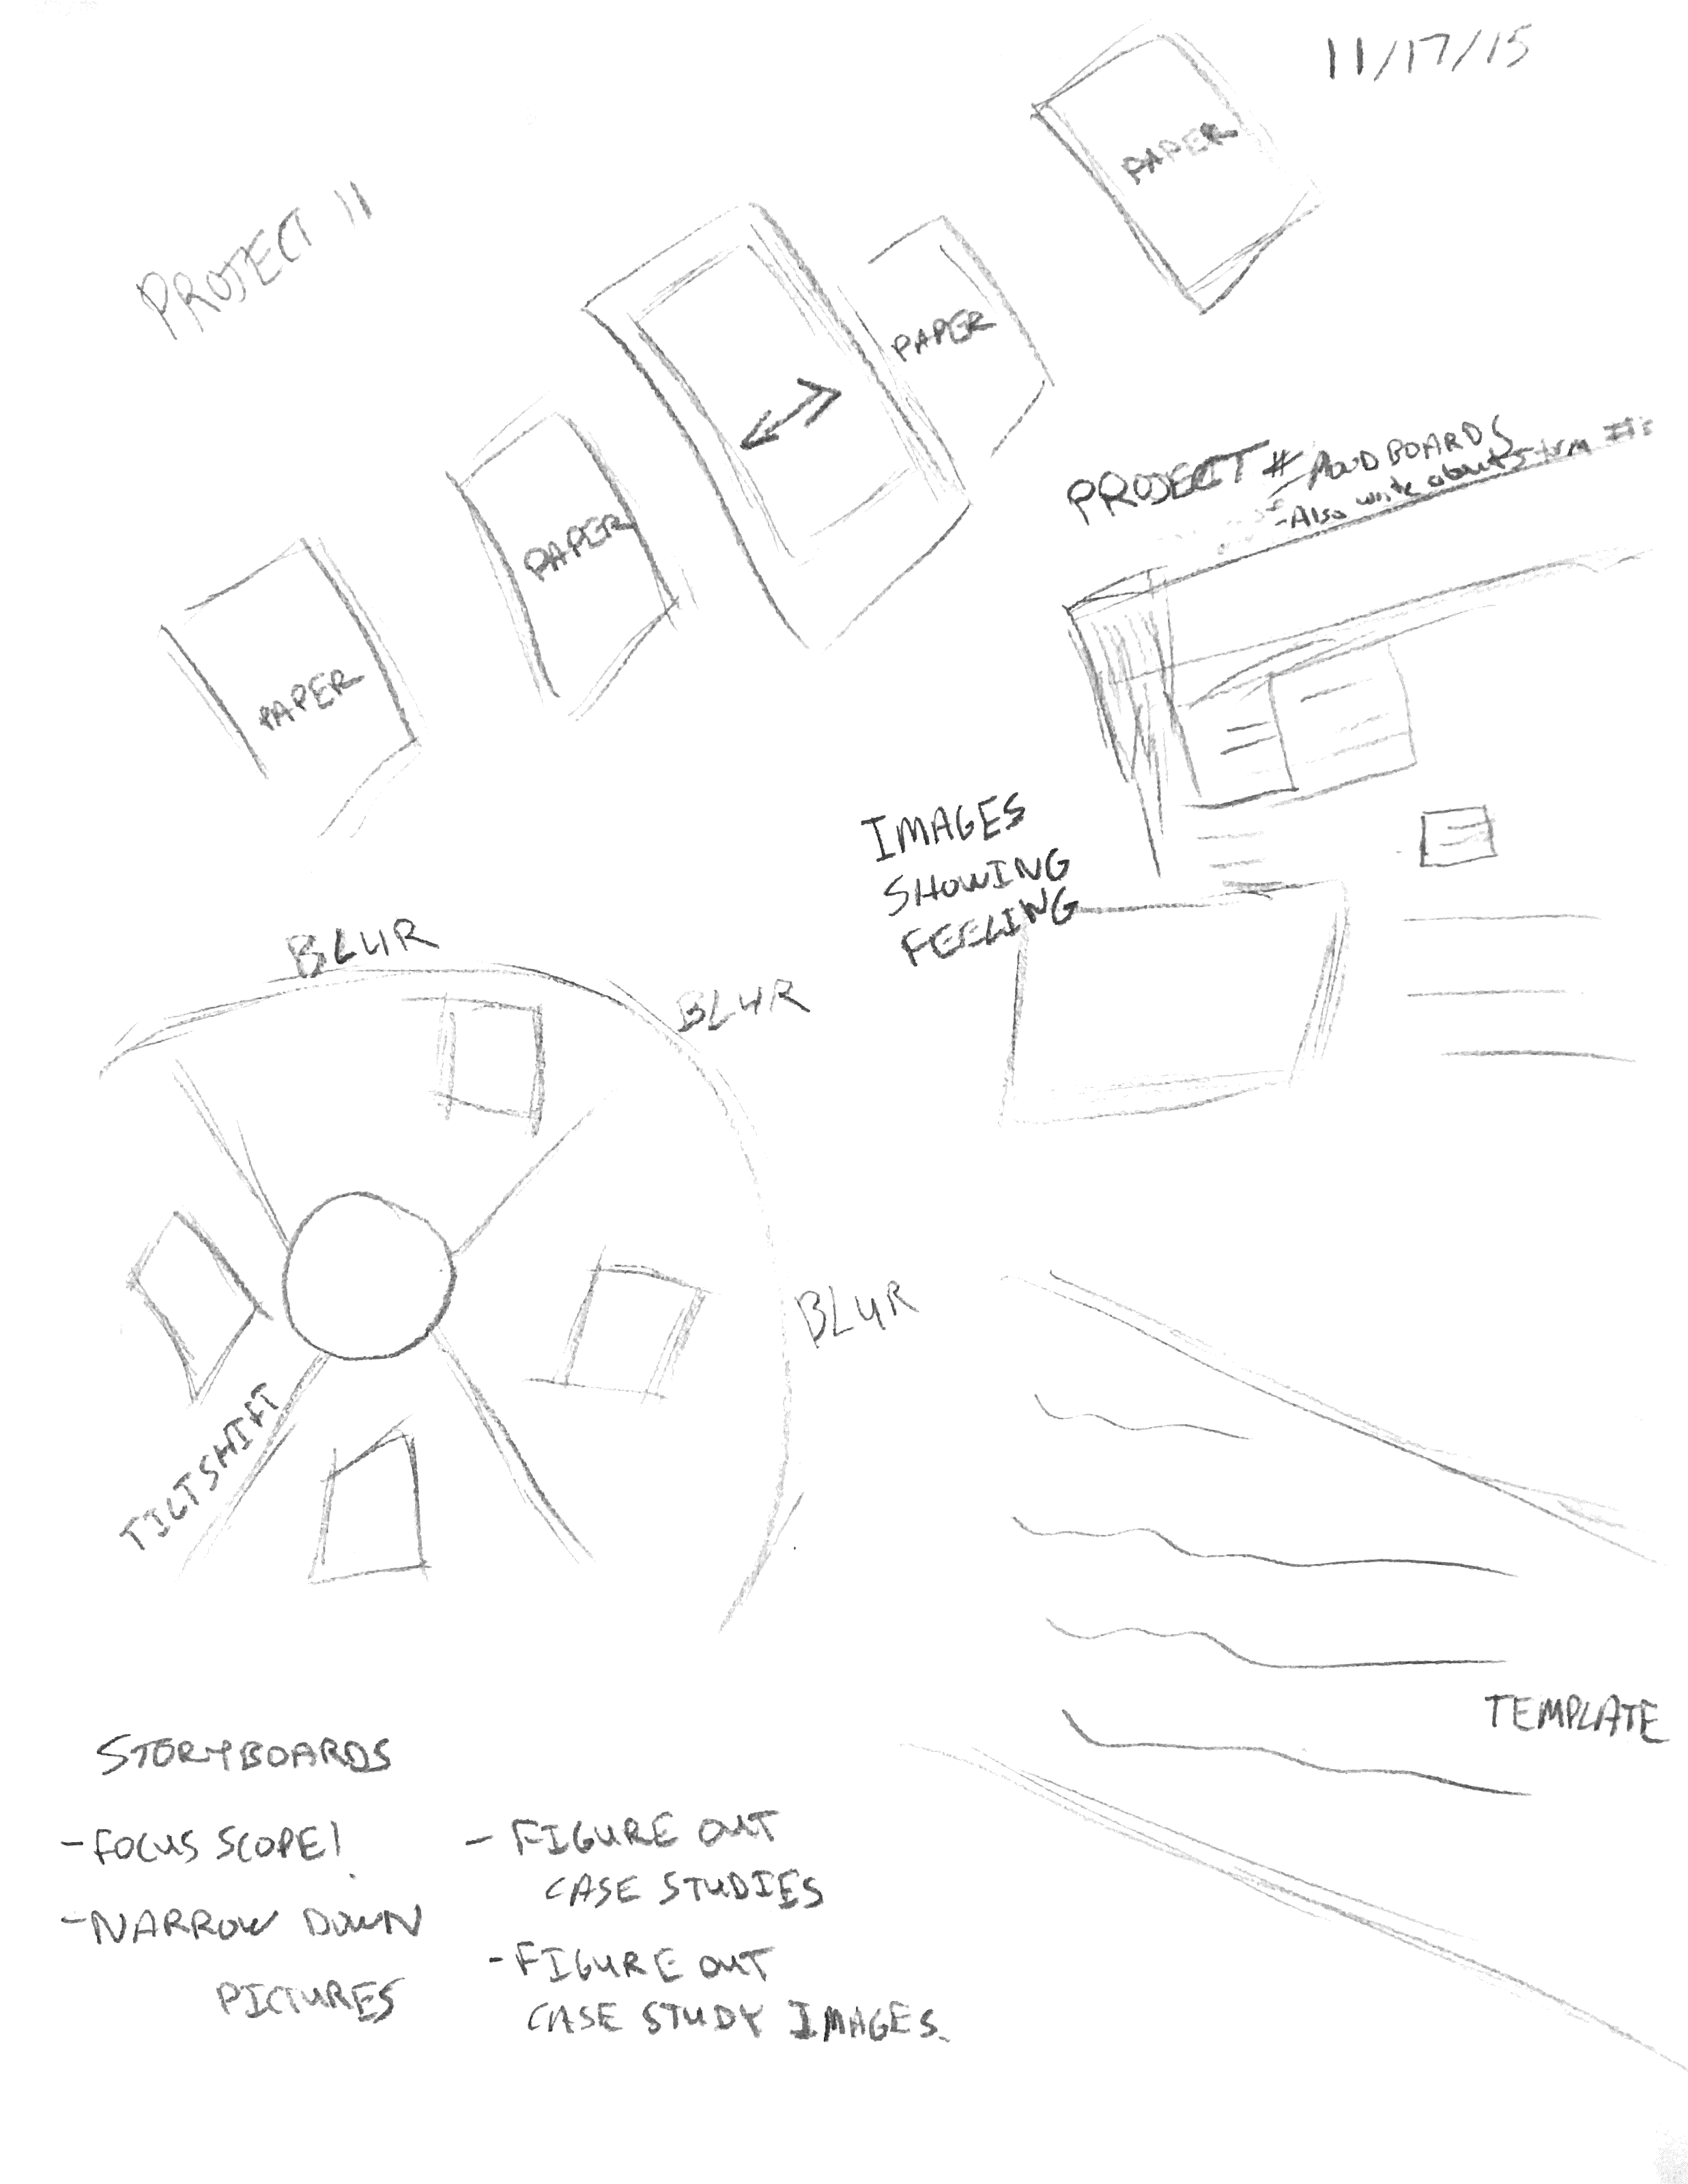 11/17/15
PROJECT 11
PAPER
PAPER
PAPER
PAPER
PROJECT # MOOD BOARDS
-Also write about
IMAGES
SHOWING
FEELING
BLUR
BLUR
BLUR
TILTSHIFT
TEMPLATE
STORYBOARDS
-FOCUS SCOPE!
-NARROW DOWN
PICTURES
- FIGURE OUT
CASE STUDIES
-FIGURE OUT
CASE STUDY IMAGES.